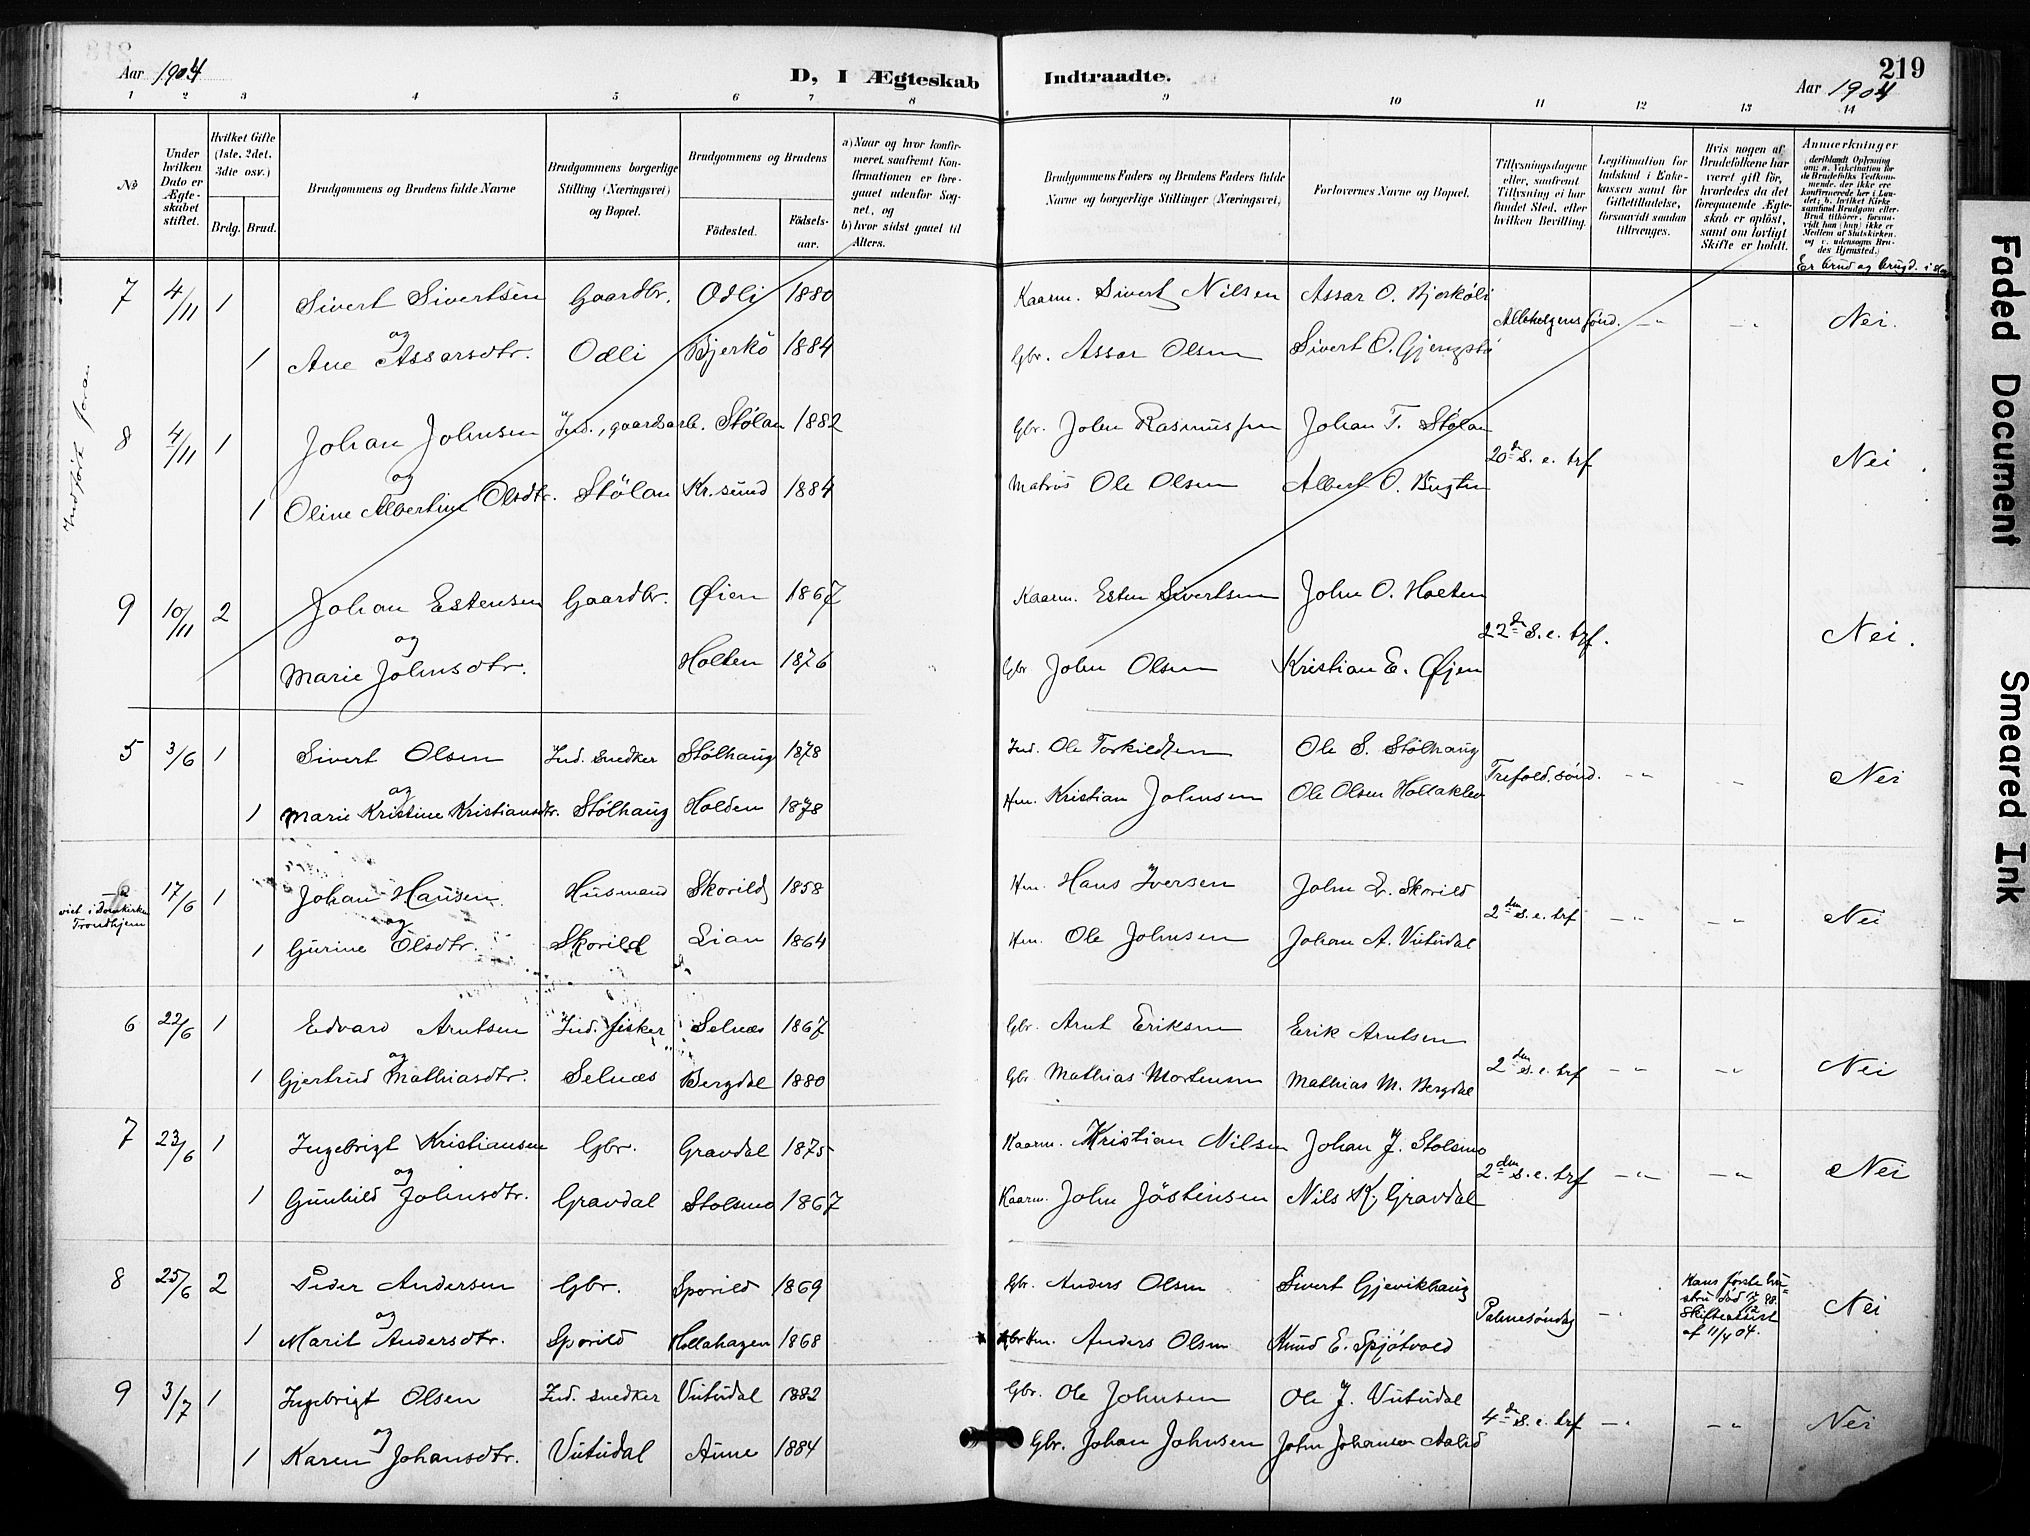 Aar 1904
D, I Ægteskab Indtraadte.
219
Aar 1904
1 2 3 4 5 6 7 8 9 10 11 12 13 14
No
Under hvilken Dato er Ægteskabet stiftet.
Hvilket Gifte (1ste, 2det, 3die osv.)
Brdg. Brud.
Brudgommens og Brudens fulde Navne
Brudgommens borgerlige Stilling (Næringsvei) og Bopæl.
Brudgommens og Brudens
Födested. Födselsaar.
a) Naar og hvor konfirmeret, saafremt Konfirmationen er foregaaet udenfor Sognet, og
b) hvor sidst gaaet til Alters.
Brudgommens Faders og Brudens Faders fulde Navne og borgerlige Stillinger (Næringsvei)
Forlovernes Navne og Bopæl.
Tillysningsdagene eller, saafremt Tillysning ei har fundet Sted, efter hvilken Bevilling.
Legitimation for Indskud i Enkekassen samt for Giftetilladelse, forsaavidt saadan tiltrænges.
Hvis nogen af Brudefolkene har været gift för, hvorledes da det foregaaende Ægteskab er oplöst, samt om lovligt Skifte er holdt.
Anmærkninger
Indført foran
7 4/11 1 Sivert Sivertsen Gaardbr. Odli 1880 Kaarm. Sivert Nilsen Assar O. Bjerköli Allehelgens sønd. -"- -"- Nei.
og
1 Ane Assarsdtr. Odli Bjerkö 1884 Gbr. Assar Olsen Sivert O.
8 4/11 1 Johan Johnsen Ind., gaardsarb. Stølan 1882 Gbr. John Rasmussen Johan T. Stølan 20de S. e. trf Nei.
og
1 Oline Albertine Olsdtr. Stölan Kr.sund 1884 Matros Ole Olsen Albert O. Bugten
9 10/11 2 Johan Estensen Gaardbr. Øien 1867 Kaarm. Esten Sivertsen John O. Holten 22de S. e. trf. Nei.
og
Marie Johnsdtr. Holten 1876 Gbr John Olsen Kristian E. Øjen
5 3/6 1 Sivert Olsen Ind. snedker Stølhaug 1878 Ind. Ole Torkildsen Ole S. Stølhaug Trefold. sønd. -"- -"- Nei
og
1 Marie Kristine Kristiansdtr. Stølhaug Holden 1878 Hm. Kristian Johnsen Ole Olsen Hollaklev
17/6 1 Johan Hansen Husmand Skorild 1858 Hm. Hans Iversen John L. Skorild 2den S. e. trf -"- -"- Nei
viet i Domkirken Trondhjem
og
1 Gurine Olsdtr. Skorild Lian 1864 Hm. Ole Johnsen Johan A. Vutudal
6 22/6 1 Edvard Arntsen Ind. fisker Selnæs 1867 Gbr. Arnt Eriksen Erik Arntsen 2den S. e. trf -"- -"- Nei
og
1 Gjertrud Mathiasdtr. Selnæs Bergdal 1880 Gbr. Mathias Mortensen Mathias M. Bergdal
7 23/6 1 Ingebrigt Kristiansen Gbr. Gravdal 1875 Kaarm. Kristian Nilsen Johan J. Stolsmo 2den S. e. trf -"- -"- Nei
og
1 Gunhild Johnsdtr. Gravdal Stolsmo 1867 Kaarm. John Jöstensen Nils K. Gravdal
8 25/6 2 Peder Andersen Gbr. Sporild 1869 Gbr. Anders Olsen Sivert Gjevikhaug Palmesøndag -"- Hans første hustru død 17/12 98. Skifteattest af 11/4 04. Nei
og
1 Marit Andersdtr. Sporild Hollahagen 1868 Hm. Anders Olsen Knud E. Spjøtvold
9 3/7 1 Ingebrigt Olsen Ind. snedker Vutudal 1882 Gbr. Ole Johnsen Ole J. Vutudal 4de S. e. trf -"- -"- Nei
og
1 Karen Johansdtr. Vutudal Aune 1884 Gbr. Johan Johnsen John Johansen
Faded Document
Smeared Ink